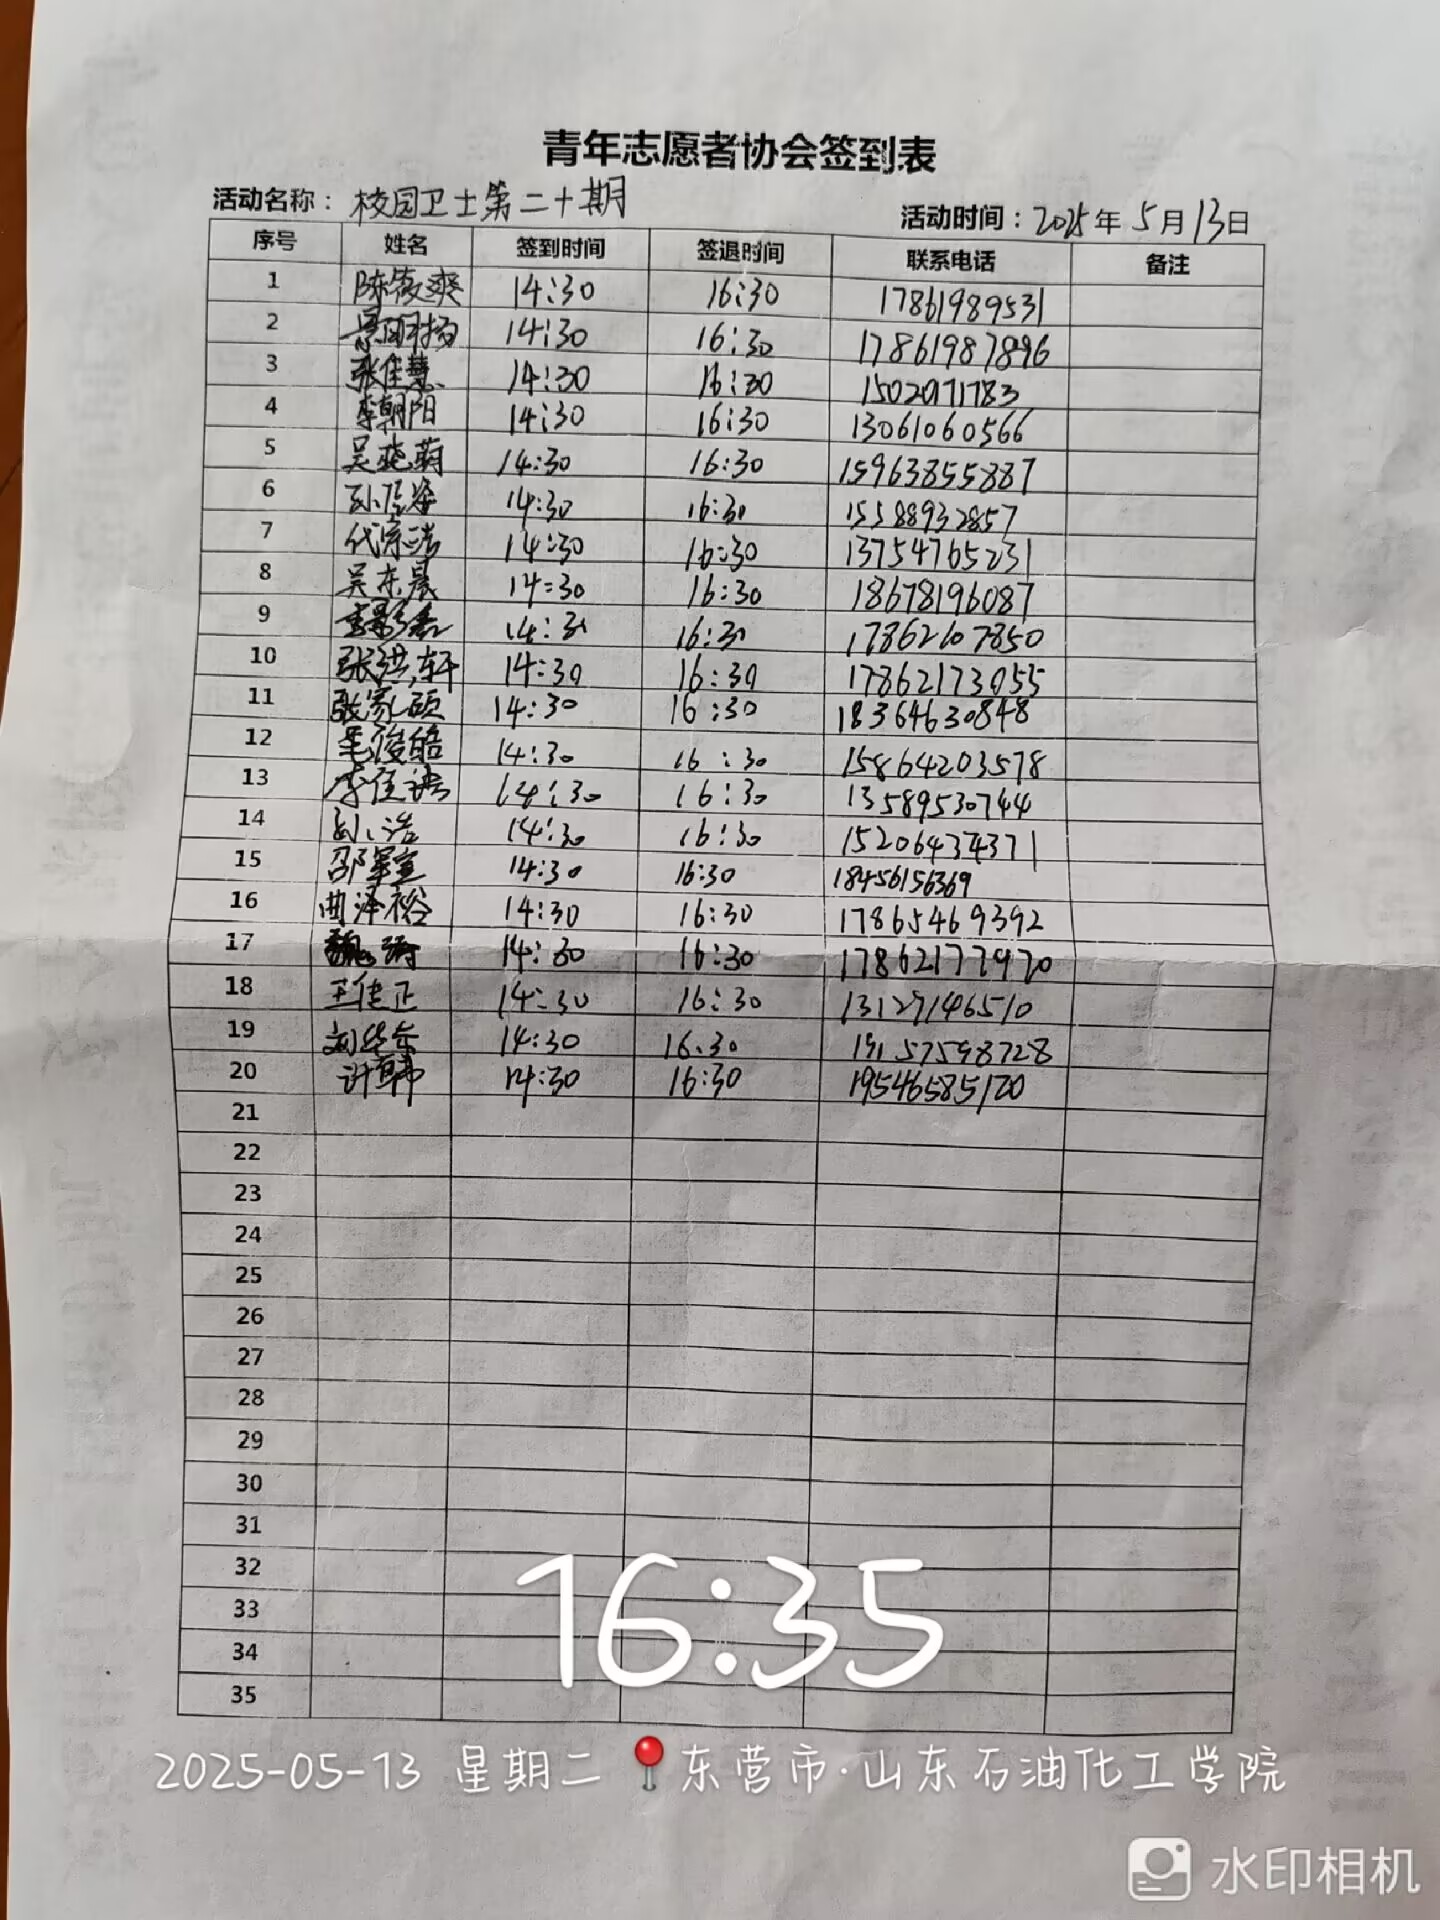 青年志愿者协会签到表
活动名称：校园卫士第二十期 活动时间：2025年5月13日
序号 姓名 签到时间 签退时间 联系电话 备注
1 陈筱爽 14:30 16:30 17861989531
2 景明扬 14:30 16:30 17861987896
3 张佳慧 14:30 16:30 1502971783
4 李朝阳 14:30 16:30 13061060566
5 吴晓萌 14:30 16:30 15963855887
6 14:30 16:30 15588932857
7 代宗浩 14:30 16:30 13754765231
8 吴东晨 14:30 16:30 18678196087
9 14:30 16:30 17862107850
10 张洪轩 14:30 16:30 17862173055
11 张家硕 14:30 16:30 18364630848
12 毛俊皓 14:30 16:30 15864203578
13 李佳诺 14:30 16:30 13589530744
14 孙浩 14:30 16:30 15206434371
15 邵军宣 14:30 16:30 18456156369
16 曲泽裕 14:30 16:30 17865469392
17 14:30 16:30 17862177970
18 王佳正 14:30 16:30 13127146510
19 刘华东 14:30 16.30 19157598728
20 许韩 14:30 16:30 19546585120
21
22
23
24
25
26
27
28
29
30
31
32
33
34
35
16:35
2025-05-13 星期二 东营市·山东石油化工学院
水印相机